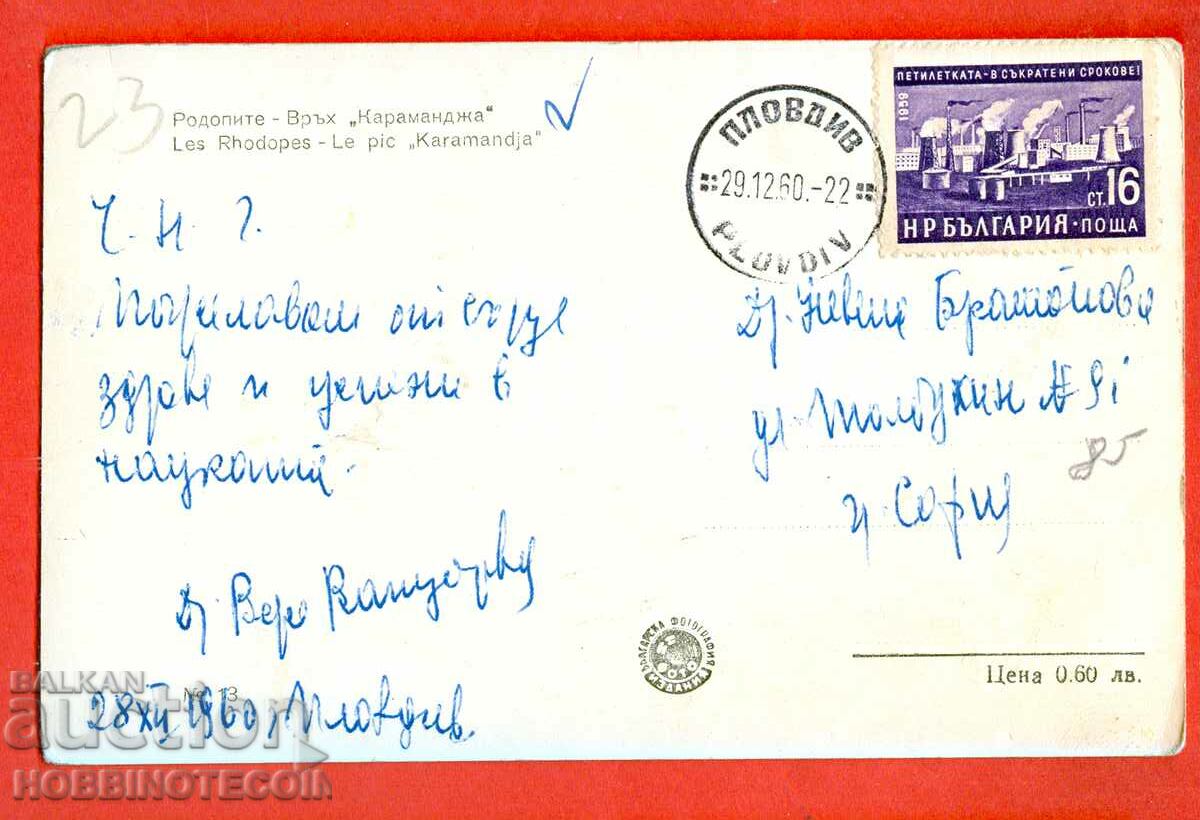 23
Родопите - Връх „Караманджа“
Les Rhodopes - Le pic „Karamandja“
Ч. Н. Г.
Пожелавам от сърце
здраве и успехи в
науката.
Д-р Вера
28 XII 1960, Пловдив.
№ 13
ПЛОВДИВ
29.12.60.-22
PLOVDIV
ПЕТИЛЕТКАТА - В СЪКРАТЕНИ СРОКОВЕ!
1959
СТ. 16
НР БЪЛГАРИЯ · ПОЩА
Д-р Невена
ул. Толбухин № 91
85
гр. София
БЪЛГАРСКА ФОТОГРАФИЯ
ИЗДАНИЯ
Цена 0.60 лв.
BALKAN
auction
HOBBINOTECOIN